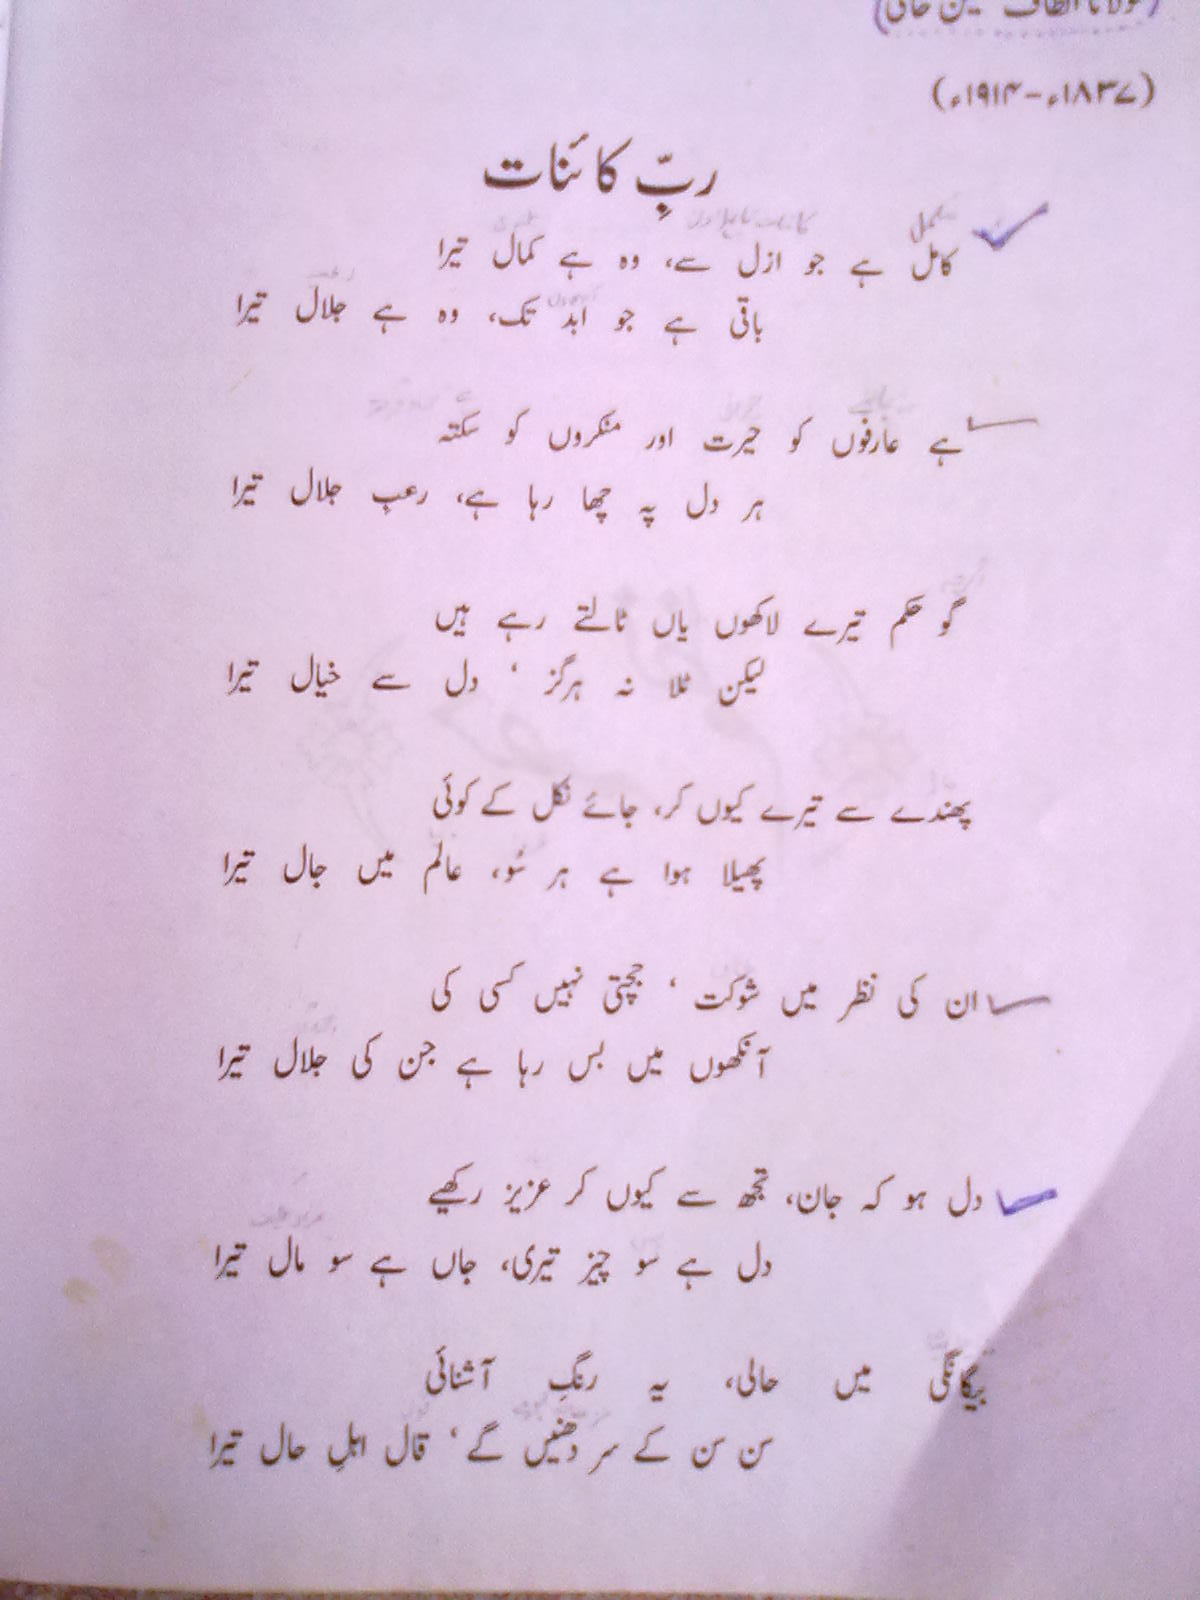 (مولانا الطاف حسین حالی)
(۱۸۳۷ء-۱۹۱۴ء)
ربِّ کائنات
مکمل
کامل ہے جو ازل سے، وہ ہے کمال تیرا
باقی ہے جو ابد تک، وہ ہے جلال تیرا
ہے عارفوں کو حیرت اور منکروں کو سکتہ
ہر دل پہ چھا رہا ہے، رعبِ جلال تیرا
گو حکم تیرے لاکھوں یاں ٹالتے رہے ہیں
لیکن ٹلا نہ ہرگز ، دل سے خیال تیرا
پھندے سے تیرے کیوں کر، جائے نکل کے کوئی
پھیلا ہوا ہے ہر سُو، عالم میں جال تیرا
ان کی نظر میں شوکت ، جچتی نہیں کسی کی
آنکھوں میں بس رہا ہے جن کی جلال تیرا
دل ہو کہ جان، تجھ سے کیوں کر عزیز رکھیے
دل ہے سو چیز تیری، جاں ہے سو مال تیرا
بیگانگی میں حالی، یہ رنگِ آشنائی
سن سن کے سر دھنیں گے ، قال اہلِ حال تیرا